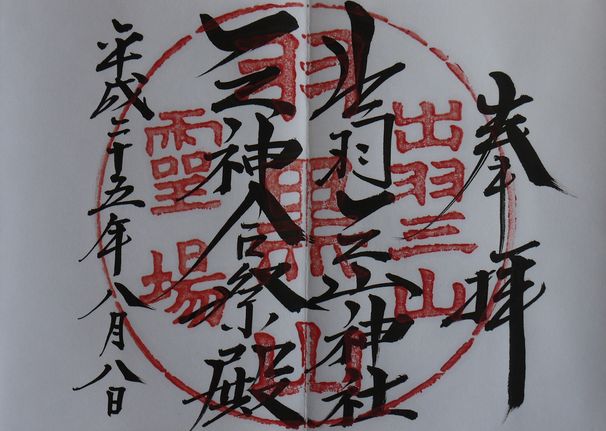 奉拝
出羽三山神社
三神合祭殿
平成二十五年八月八日
出羽三山
羽黒山
霊場